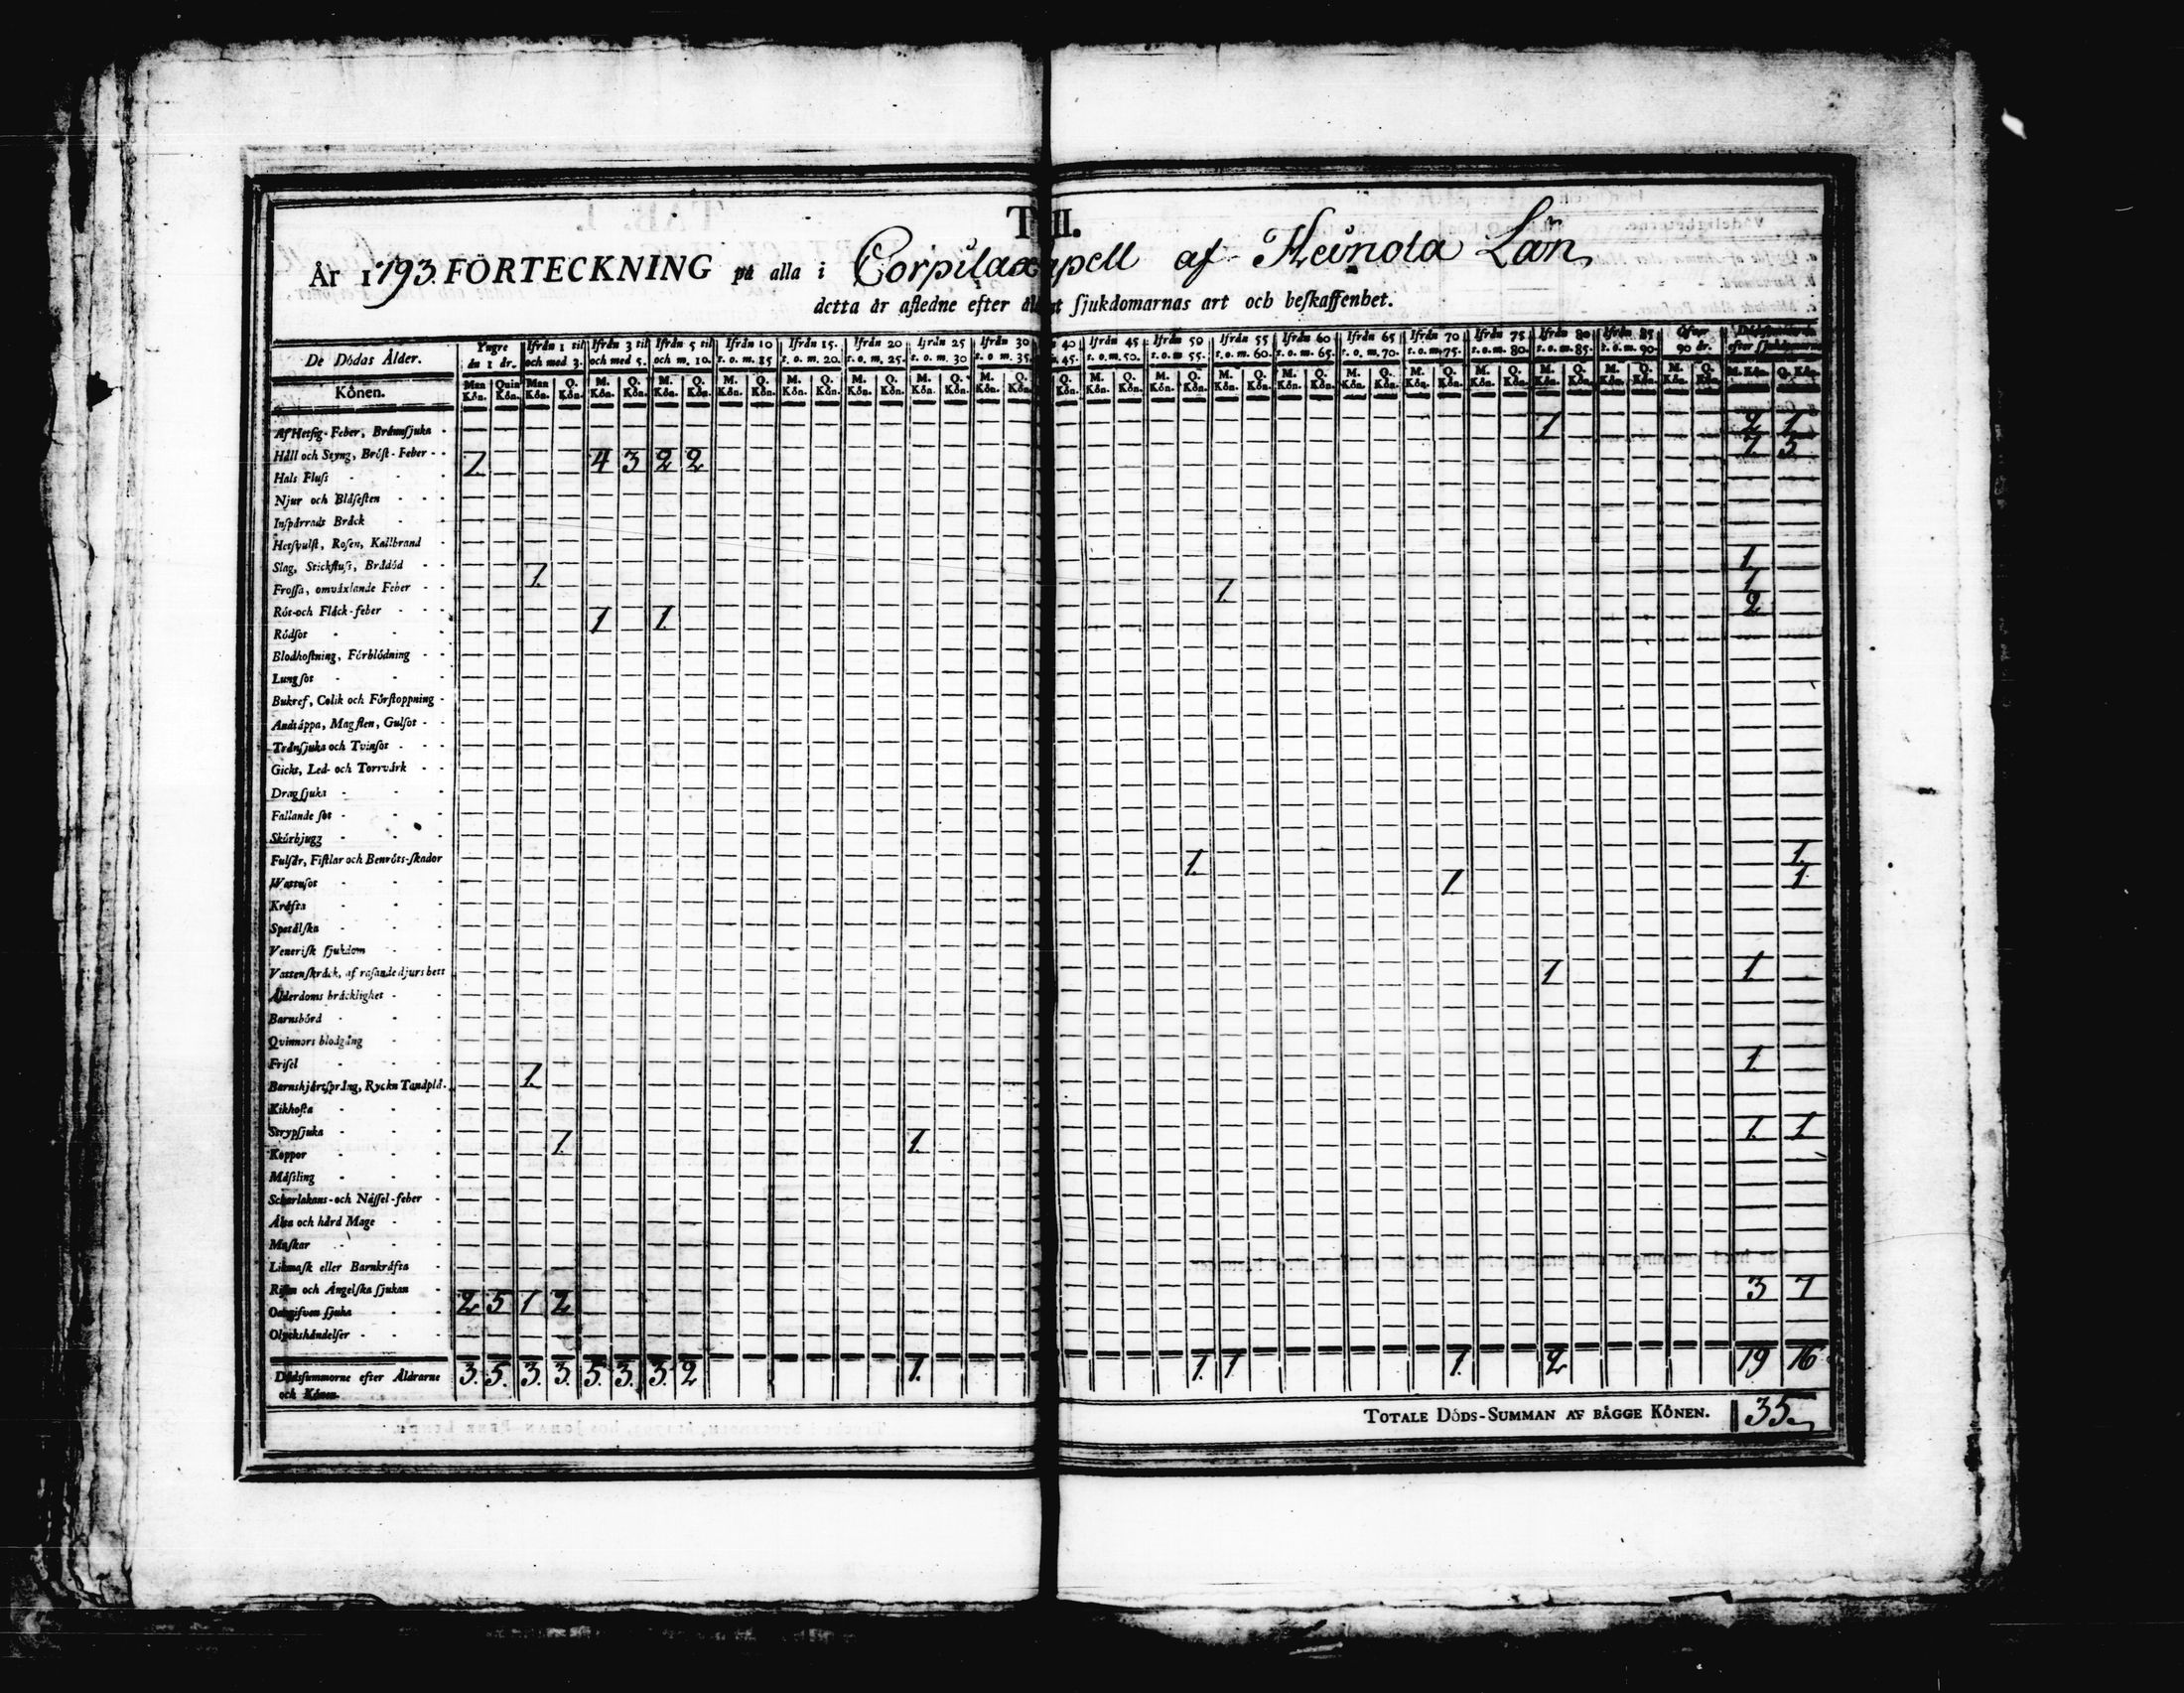 T II.
År 1793. FÖRTECKNING på alla i Corpilax apell af Heinola Län
detta år afledne efter ålder ſjukdomarnas art och beſkaffenhet.
De Dödas Ålder. Yngre än 1 år. Ifrån 1 til och med 3. Ifrån 3 til och med 5. Ifrån 5 til och m. 10. Ifrån 10 t. o. m. 15 Ifrån 15. t. o. m. 20. Ifrån 20 t. o. m. 25. Ifrån 25 t. o. m. 30 Ifrån 30 t. o m. 35. 40 45. Ifrån 45 t. o. m. 50. Ifrån 50 t. o. m 55. Ifrån 55 t. o. m. 60. Ifrån 60 t. o. m. 65. Ifrån 65 t. o. m. 70. Ifrån 70 t. o. m. 75. Ifrån 75 t. o. m. 80. Ifrån 80 t. o. m. 85. Ifrån 85 t. o. m. 90. Öfver 90 år.
Könen. Man Kön. Quin Kön. Man Kön. Q. Kön. M. Kön. Q. Kön. M. Kön. Q. Kön. M. Kön. Q. Kön. M. Kön. Q. Kön. M. Kön. Q. Kön. M. Kön. Q. Kön. M. Kön. Q. Kön. Q. Kön. M. Kön. Q. Kön. M. Kön. Q. Kön. M. Kön. Q. Kön. M. Kön. Q. Kön. M. Kön. Q. Kön. M. Kön. Q. Kön. M. Kön. Q. Kön. M. Kön. Q. Kön. M. Kön. Q. Kön. M. Kön. Q. Kön. M. Kön. Q. Kön.
Af Hetſig-Feber, Brännſjuka 1 2 1
Håll och Styng, Bröſt-Feber 1 4 3 2 2 7 5
Hals Fluſs
Njur och Blåſeſten
Inſpärradt Bråck
Hetſvulſt, Roſen, Kallbrand
Slag, Stickfluſs, Brådöd 1. 1.
Froſſa, omväxlande Feber 1. 1
Röt-och Fläck-feber 1 1. 2
Rödſot
Blodhoſtning, Förblödning
Lungſot
Bukref, Colik och Förſtoppning
Andtäppa, Magſten, Gulſot
Trånſjuka och Tvinſot
Gickt, Led- och Torrvärk
Dragſjuka
Fallande ſot
Skörbjugg
Fulſår, Fiſtlar och Benröts-ſkador 1. 1.
Wattuſot 1. 1.
Kräfta
Spetälſka
Veneriſk ſjukdom
Vattenſkräck, af raſande djurs bett 1 1
Ålderdoms bräcklighet
Barnsbörd
Qvinnors blodgång
Friſel 1.
Barnshjärtſprång, Ryckn Tandplå. 1.
Kikhoſta
Strypſjuka 1. 1.
Koppor 1. 1.
Mäſsling
Scharlakans-och Näſſel-feber
Älta och hård Mage
Maſkar
Likmaſk eller Barnkräfta
Riſen och Ängelſka ſjukan 3 7
Oangifven ſjuka 2 5 1 2
Olyckshändelſer
Dödsſummorne efter Åldrarne och Könen. 3. 5. 3. 3. 5. 3. 3. 2 1. 1. 1 1. 2 19 16
TOTALE DÖDS-SUMMAN AF BÄGGE KÖNEN. 35